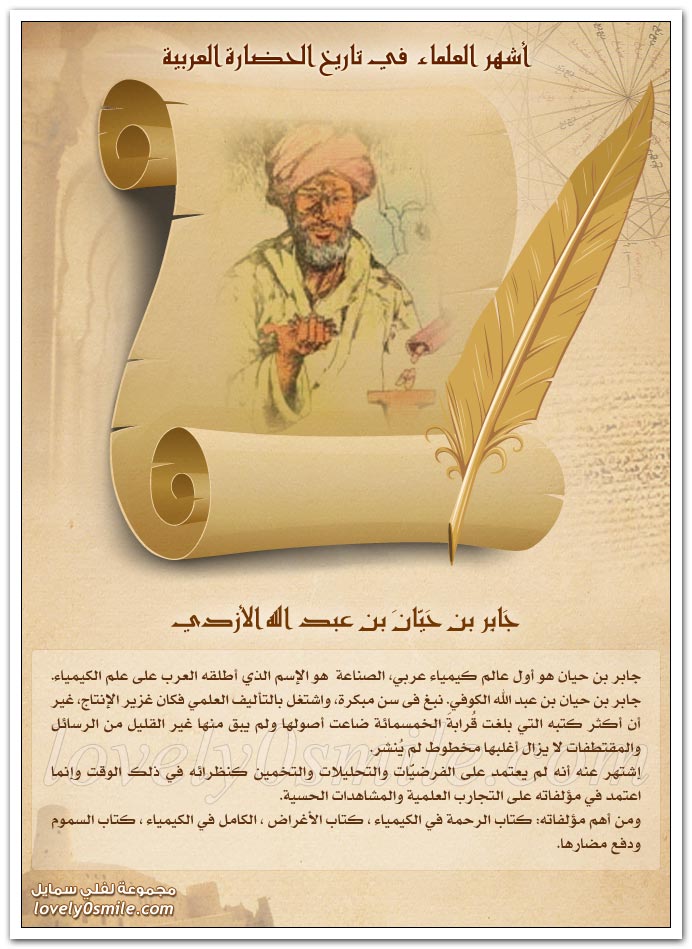 أشهر العلماء في تاريخ الحضارة العربية
جَابِر بن حَيّانَ بن عبد الله الأزدي
جابر بن حيان هو أول عالم كيمياء عربي، الصناعة هو الإسم الذي أطلقه العرب على علم الكيمياء.
جابر بن حيان بن عبد الله الكوفي. نبغ فى سن مبكرة، واشتغل بالتأليف العلمي فكان غزير الإنتاج، غير
أن أكثر كتبه التي بلغت قُرابة الخمسمائة ضاعت أصولها ولم يبق منها غير القليل من الرسائل
والمقتطفات لا يزال أغلبها مخطوط لم يُنشر.
إشتهر عنه أنه لم يعتمد على الفرضيّات والتحليلات والتخمين كنظرائه في ذلك الوقت وإنما
اعتمد في مؤلفاته على التجارب العلمية والمشاهدات الحسية.
ومن أهم مؤلفاته: كتاب الرحمة في الكيمياء ، كتاب الأغراض ، الكامل في الكيمياء ، كتاب السموم
ودفع مضارها.
lovely0smile.com
مجموعة لفلي سمايل
lovely0smile.com